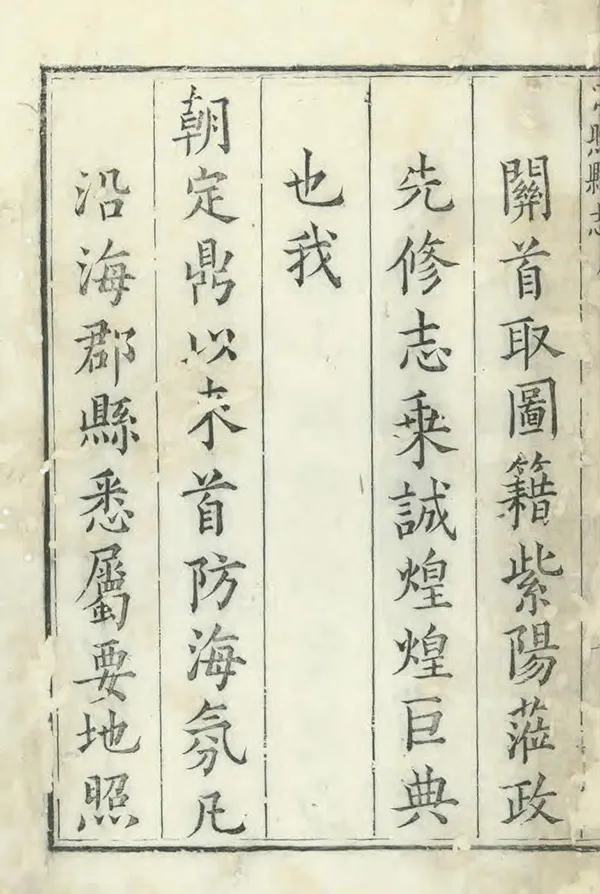 照縣志
闗首取圖籍紫陽蒞政
先修志乗誠煌煌巨典
也我
朝定鼎以来首防海氛凡
沿海郡縣悉屬要地照